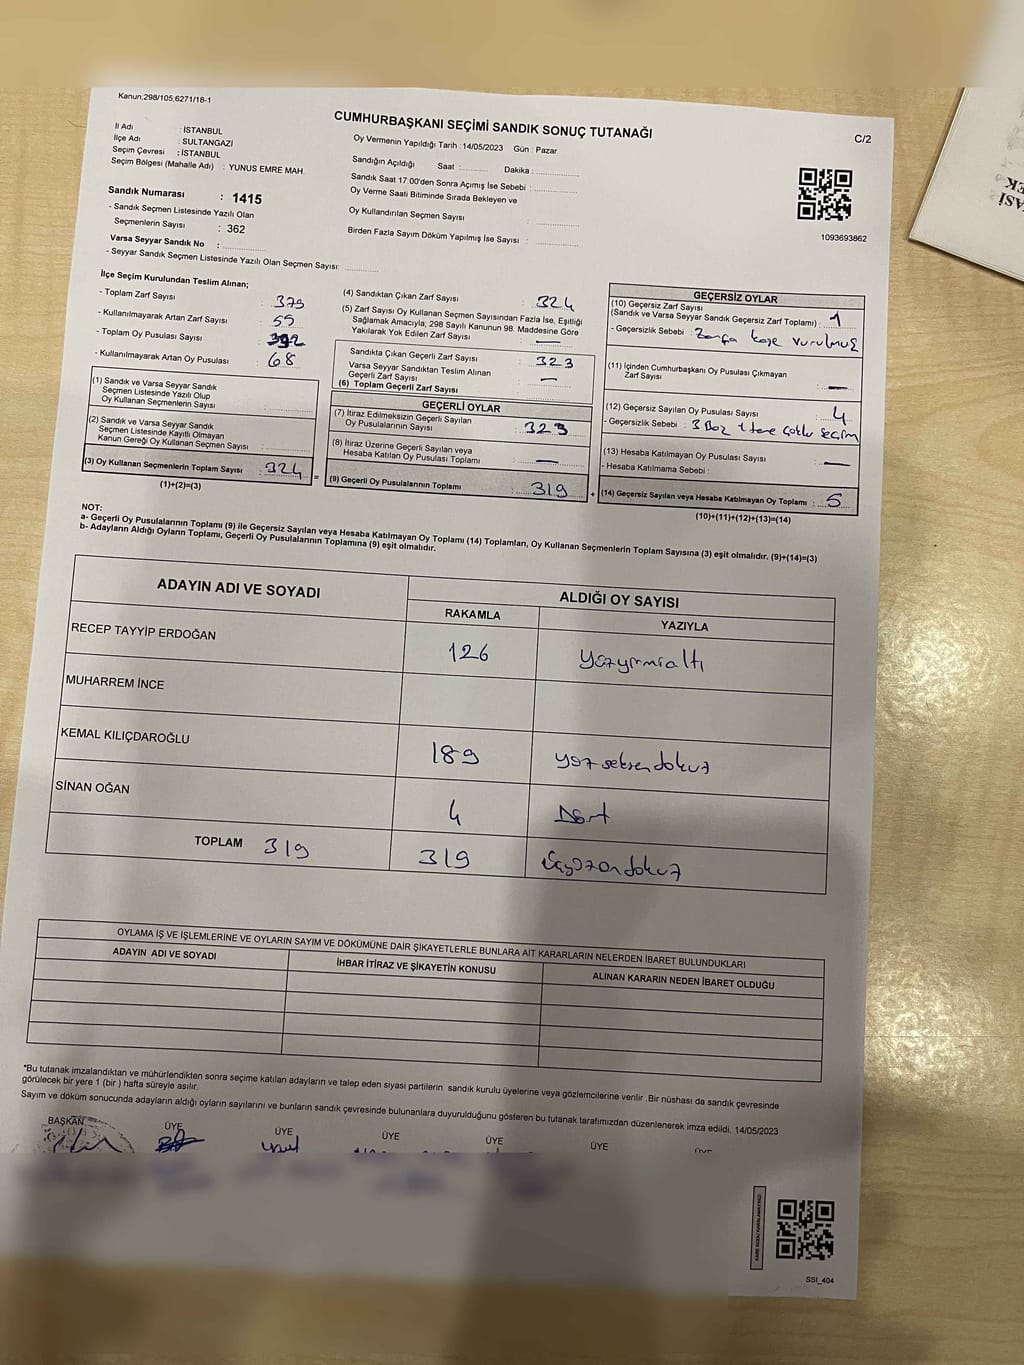 Kanun;298/105;6271/18-1
CUMHURBAŞKANI SEÇİMİ SANDIK SONUÇ TUTANAĞI
C/2
İl Adı : İSTANBUL
İlçe Adı : SULTANGAZİ
Seçim Çevresi : İSTANBUL
Seçim Bölgesi (Mahalle Adı) : YUNUS EMRE MAH.
Sandık Numarası : 1415
- Sandık Seçmen Listesinde Yazılı Olan
Seçmenlerin Sayısı : 362
Varsa Seyyar Sandık No :
- Seyyar Sandık Seçmen Listesinde Yazılı Olan Seçmen Sayısı:
Oy Vermenin Yapıldığı Tarih :14/05/2023 Gün : Pazar
Sandığın Açıldığı Saat : Dakika :
Sandık Saat 17:00'den Sonra Açımış İse Sebebi :
Oy Verme Saati Bitiminde Sırada Bekleyen ve
Oy Kullandırılan Seçmen Sayısı :
Birden Fazla Sayım Döküm Yapılmış İse Sayısı :
1093693862
İlçe Seçim Kurulundan Teslim Alınan;
- Toplam Zarf Sayısı : 379
- Kullanılmayarak Artan Zarf Sayısı : 55
- Toplam Oy Pusulası Sayısı : 392
- Kullanılmayarak Artan Oy Pusulası : 68
(1) Sandık ve Varsa Seyyar Sandık
Seçmen Listesinde Yazılı Olup
Oy Kullanan Seçmenlerin Sayısı :
(2) Sandık ve Varsa Seyyar Sandık
Seçmen Listesinde Kayıtlı Olmayan
Kanun Gereği Oy Kullanan Seçmen Sayısı :
(3) Oy Kullanan Seçmenlerin Toplam Sayısı : 324
(1)+(2)=(3)
=
(4) Sandıktan Çıkan Zarf Sayısı : 324
(5) Zarf Sayısı Oy Kullanan Seçmen Sayısından Fazla İse, Eşitliği
Sağlamak Amacıyla, 298 Sayılı Kanunun 98. Maddesine Göre
Yakılarak Yok Edilen Zarf Sayısı : —
Sandıkta Çıkan Geçerli Zarf Sayısı : 323
Varsa Seyyar Sandıktan Teslim Alınan
Geçerli Zarf Sayısı : —
(6) Toplam Geçerli Zarf Sayısı
GEÇERLİ OYLAR
(7) İtiraz Edilmeksizin Geçerli Sayılan
Oy Pusulalarının Sayısı : 323
(8) İtiraz Üzerine Geçerli Sayılan veya
Hesaba Katılan Oy Pusulası Toplamı : —
(9) Geçerli Oy Pusulalarının Toplamı : 319
+
GEÇERSİZ OYLAR
(10) Geçersiz Zarf Sayısı
(Sandık ve Varsa Seyyar Sandık Geçersiz Zarf Toplamı) : 1
- Geçersizlik Sebebi : Zarfa kaşe vurulmuş
(11) İçinden Cumhurbaşkanı Oy Pusulası Çıkmayan
Zarf Sayısı : —
(12) Geçersiz Sayılan Oy Pusulası Sayısı : 4
- Geçersizlik Sebebi : 3 Boz 1 tane çoklu seçim
(13) Hesaba Katılmayan Oy Pusulası Sayısı : —
- Hesaba Katılmama Sebebi :
(14) Geçersiz Sayılan veya Hesaba Katılmayan Oy Toplamı : 5
(10)+(11)+(12)+(13)=(14)
NOT:
a- Geçerli Oy Pusulalarının Toplamı (9) ile Geçersiz Sayılan veya Hesaba Katılmayan Oy Toplamı (14) Toplamları, Oy Kullanan Seçmenlerin Toplam Sayısına (3) eşit olmalıdır. (9)+(14)=(3)
b- Adayların Aldığı Oyların Toplamı, Geçerli Oy Pusulalarının Toplamına (9) eşit olmalıdır.
ADAYIN ADI VE SOYADI
ALDIĞI OY SAYISI
RAKAMLA YAZIYLA
RECEP TAYYİP ERDOĞAN 126 yüzyirmialtı
MUHARREM İNCE
KEMAL KILIÇDAROĞLU 189 yüz seksendokuz
SİNAN OĞAN 4 Dört
TOPLAM 319 319 üçyüzondokuz
OYLAMA İŞ VE İŞLEMLERİNE VE OYLARIN SAYIM VE DÖKÜMÜNE DAİR ŞİKAYETLERLE BUNLARA AİT KARARLARIN NELERDEN İBARET BULUNDUKLARI
ADAYIN ADI VE SOYADI İHBAR İTİRAZ VE ŞİKAYETİN KONUSU ALINAN KARARIN NEDEN İBARET OLDUĞU
*Bu tutanak imzalandıktan ve mühürlendikten sonra seçime katılan adayların ve talep eden siyasi partilerin sandık kurulu üyelerine veya gözlemcilerine verilir .Bir nüshası da sandık çevresinde
görülecek bir yere 1 (bir ) hafta süreyle asılır.
Sayım ve döküm sonucunda adayların aldığı oyların sayılarını ve bunların sandık çevresinde bulunanlara duyurulduğunu gösteren bu tutanak tarafımızdan düzenlenerek imza edildi. 14/05/2023
BAŞKAN ÜYE ÜYE ÜYE ÜYE ÜYE ÜYE
SSI_404